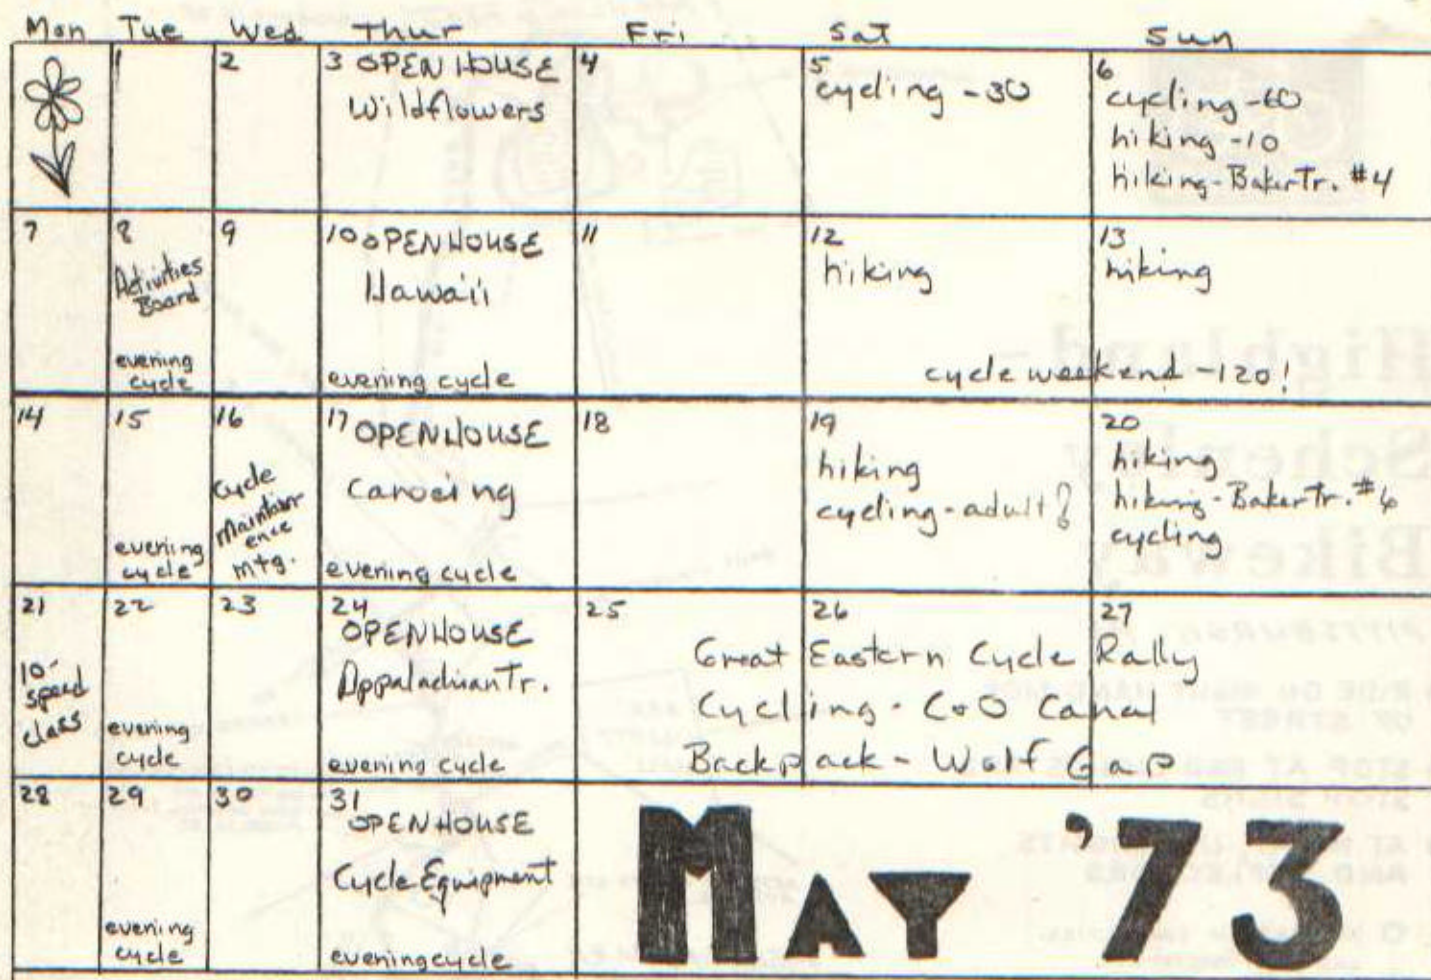 Mon Tue Wed Thur Fri Sat Sun
1
2
3 OPEN HOUSE
Wildflowers
4
5
cycling - 30
6
cycling - 60
hiking - 10
hiking - Baker Tr. #4
7
8
Activities
Board
evening
cycle
9
10 OPENHOUSE
Hawaii
evening cycle
11
12
hiking
13
hiking
cycle weekend - 120!
14
15
evening
cycle
16
Cycle
Maintain
ence
mtg.
17 OPENHOUSE
Canoeing
evening cycle
18
19
hiking
cycling - adult?
20
hiking
hiking - Baker Tr. #6
cycling
21
10
speed
class
22
evening
cycle
23
24
OPENHOUSE
Appalachian Tr.
evening cycle
25
26
27
Great Eastern Cycle Rally
Cycling - C+O Canal
Backpack - Wolf Gap
28
29
evening
cycle
30
31
OPENHOUSE
Cycle Equipment
evening cycle
MAY '73
Highland -
Schenley
Bikeway
PITTSBURGH
RIDE ON RIGHT HAND SIDE
OF STREET